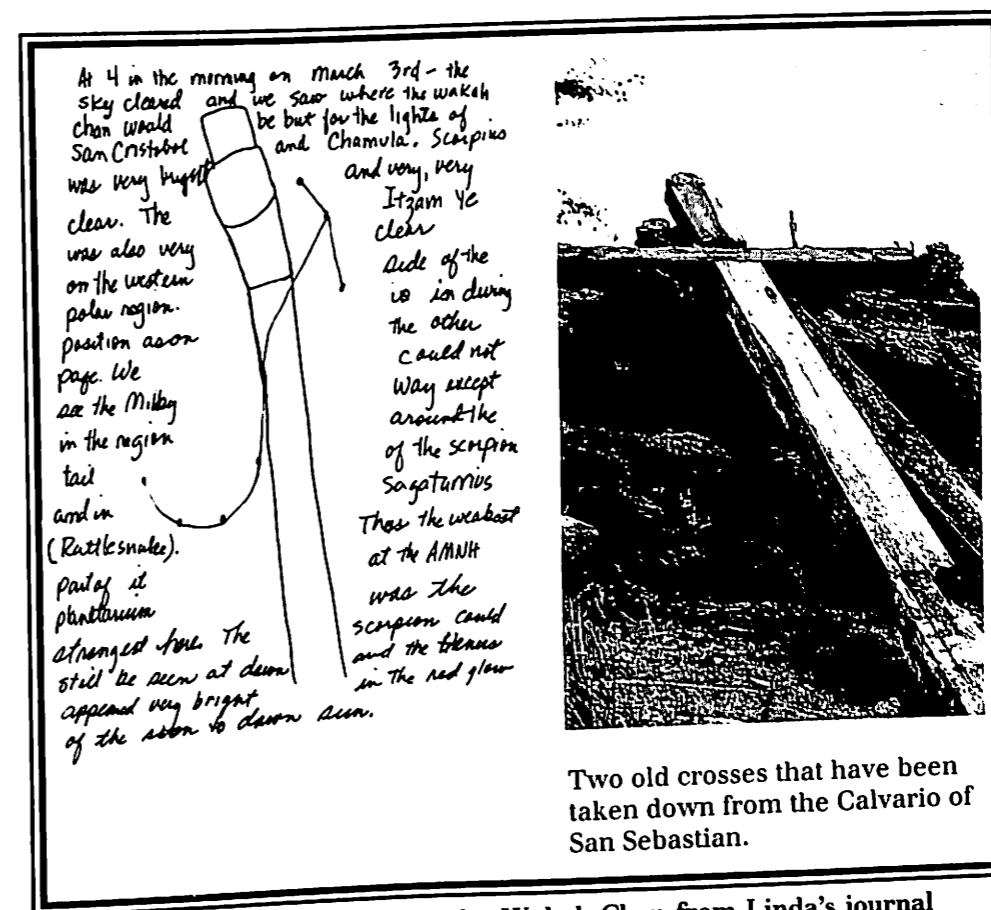 At 4 in the morning on March 3rd – the
sky cleared and we saw where the wakah
chan would be but for the lights of
San Cristobol and Chamula. Scorpius
was very bright and very, very
clear. The Itzam Ye
was also very clear
on the western side of the
polar region. is in during
position as on the other
page. We could not
see the Milky way except
in the region around the
tail of the scorpion
and in Sagatarrius
(Rattlesnake). Thos the weakest
part of it at the AMNH
planitarium was the
strongest here. The scorpion could
still be seen at dawn and the
appeared very bright in the red glow
of the soon to dawn sun.
Two old crosses that have been
taken down from the Calvario of
San Sebastian.
from Linda's journal